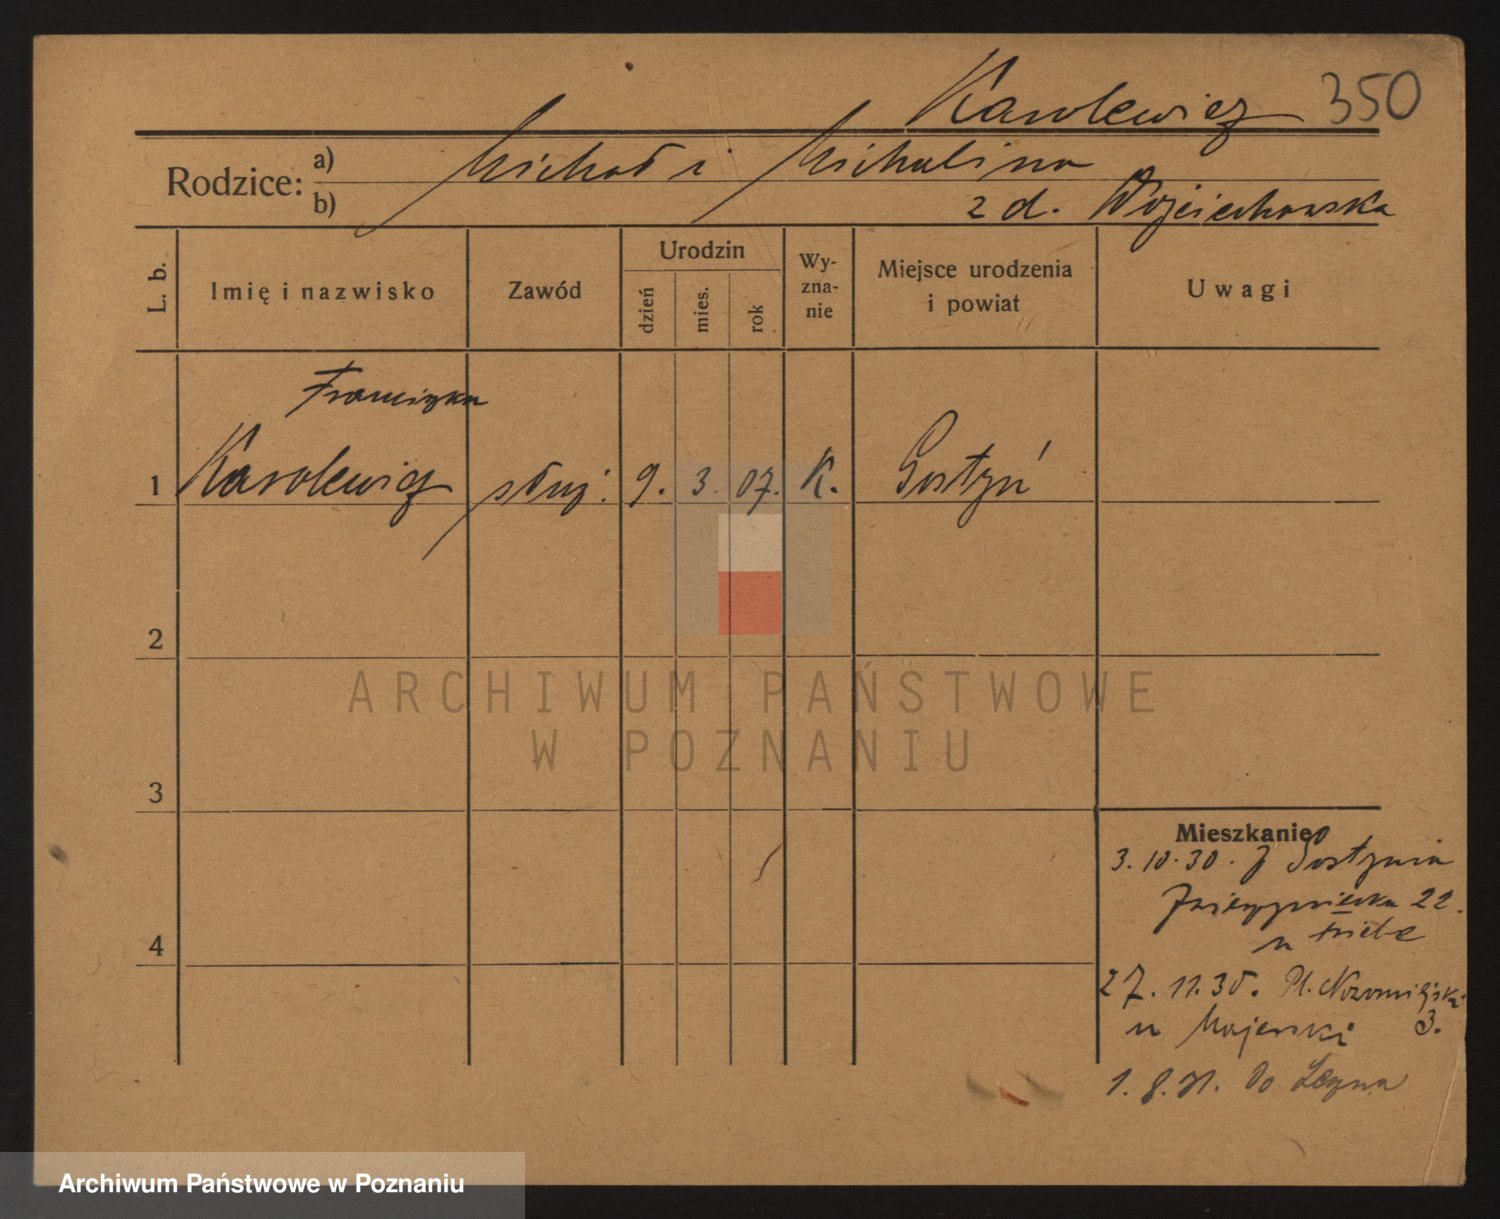 Karolewicz 350
Rodzice: a) Michał i Michalina
b) z d. Wojciechowska
L. b.
Imię i nazwisko
Zawód
Urodzin
dzień
mies.
rok
Wy-
zna-
nie
Miejsce urodzenia
i powiat
Uwagi
Franciszka
1 Karolewicz służ. 9. 3. 07. K. Gostyń
2
3
4
Mieszkanie
3.10.30. z Gostynia
22.
u
27.11.30. Pl. Nowomiejski
u Majerski 3.
1.8.31. do
ARCHIWUM PAŃSTWOWE
W POZNANIU
Archiwum Państwowe w Poznaniu